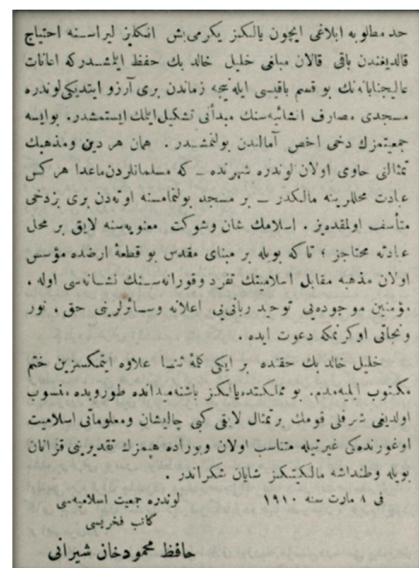 حد مطلوبه ابلاغی ایچون یالکز یکرمی بش انکلیز لیراسنه احتیاج
قالدیغندن باقی قالان مبالغی خلیل خالد بك حفظ ایلمشدر که اعانات
عالیجنابانه نك بو قسم باقیسی ایله خیلی زماندن بری آرزو ایتدیکی لوندره
مسجدی مصارف انشائیه سنك مبدأنی تشکیل ایلمك ایستمشدر. بو ایسه
جمعیتمزك دخی اخص آمالندن بولنمشدر . همان هر دین ومذهبك
تمثالنی حاوی اولان لوندره شهرنده ـ که مسلمانلردن ماعدا هرکس
عبادت محللرینه مالکدر ـ بر مسجد بولنمامسنه اوته دن بری بز دخی
متأسف اولمقده یز . اسلامك شان وشوکت معنویه سنه لایق بر محل
عبادته محتاجز ؛ تا که بویله بر مبنای مقدس بو قطعهٔ ارضده مؤسس
اولان مذهبه مقابل اسلامیتك تفرد وقورانه سنك نشانه سی اوله .
مؤمنین موجوده یی توحید ربانی یی اعلانه وسائرلرینی حق ، نور
ونجاتی اوکرنمکه دعوت ایده .
خلیل خالد بك حقنده بر ایکی کلمهٔ ثنا علاوه ایتمکسزین ختم
مکتوب ایلیه مدم. بو مملکتده یالکز باشنه میدانده طوروبده منسوب
اولدیغی شرفلی قومك بر تمثال لایقی کبی چالیشان ومعلوماتی اسلامیت
اوغورنده کی غیرتیله متناسب اولان وبوراده هپمزك تقدیرینی قزانان
بویله وطنداشه مالکیتکز شایان شکراندر .
فی ٨ مارت سنه ١٩١٠ لوندره جمعیت اسلامیه سی
کاتب فخریسی
حافظ محمودخان شیرانی